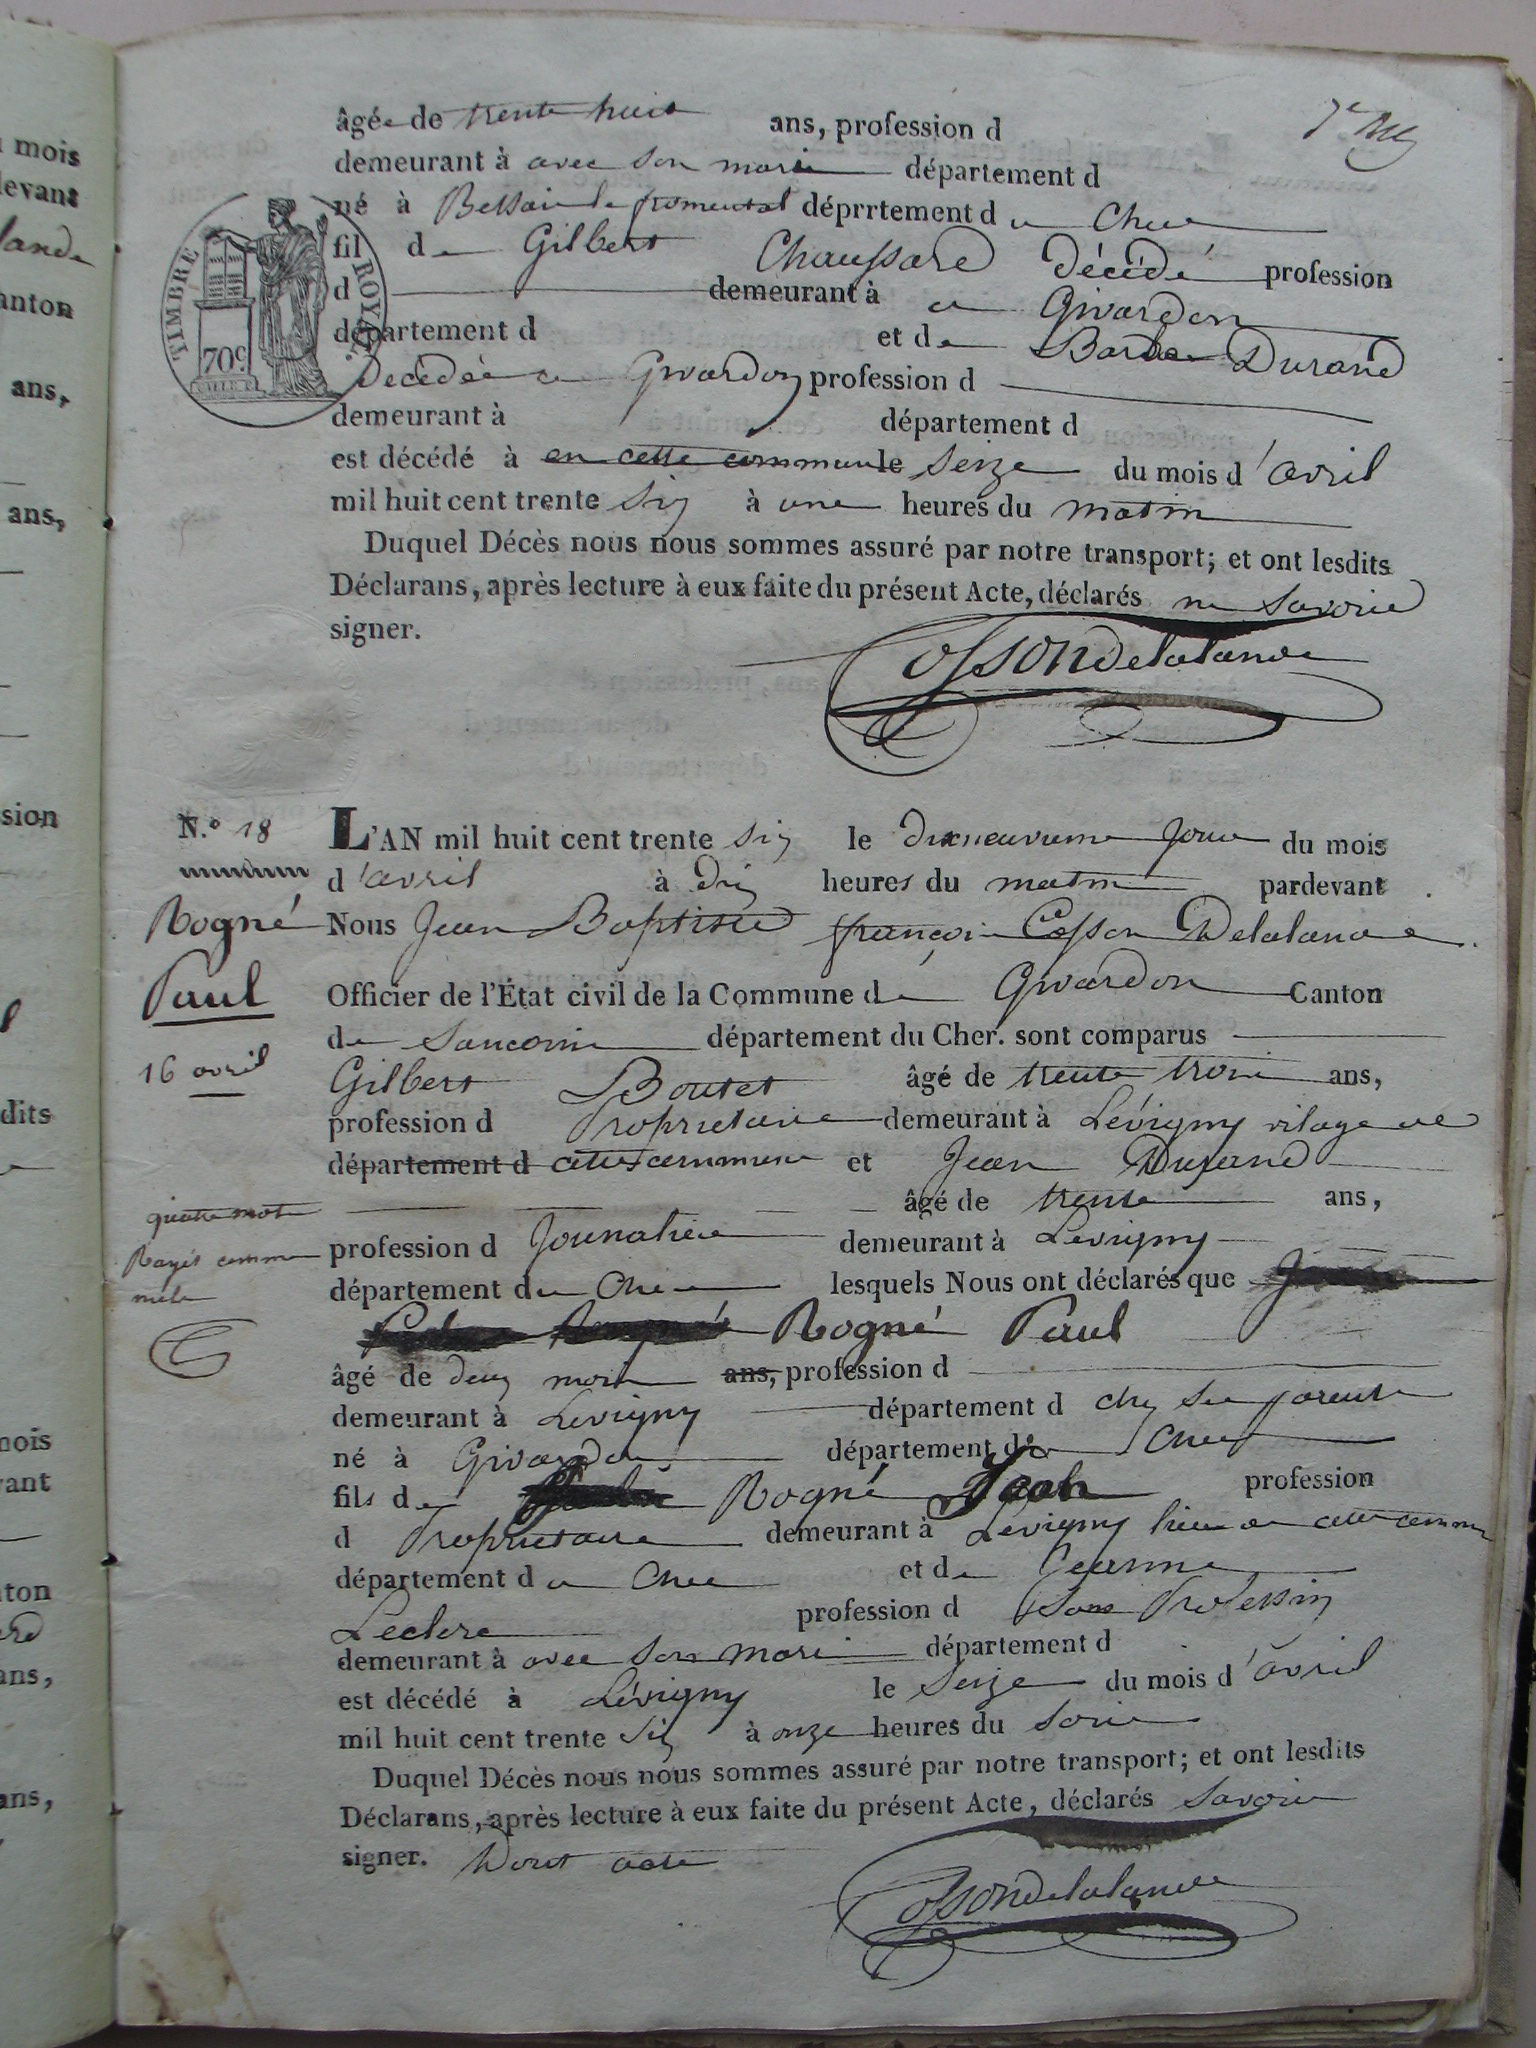 âgée de trente huit ans, profession d
demeurant à avec son mari département d
né à Bessais le fromental déprrtement du Cher
fil de Gilbert Chaussard décédé profession
d demeurant à a Givardon
département d et de Barbe Durand
Décédée a Givardon profession d
demeurant à département d
est décédé à en cette commune le Seize du mois d'avril
mil huit cent trente Six à une heures du matin
Duquel Décès nous nous sommes assuré par notre transport; et ont lesdits
Déclarans, après lecture à eux faite du présent Acte, déclarés ne Savoir
signer.
Cossondelalande
TIMBRE ROYAL
70c
N.º 18
Rogné
Paul
16 avril
L'AN mil huit cent trente Six le Dixneuvieme Jour du mois
d'avril à Dix heures du matin pardevant
Nous Jean Baptiste françois Cosson Delalande
Officier de l'État civil de la Commune de Givardon Canton
de Sancoins département du Cher. sont comparus
Gilbert Boutet âgé de trente trois ans,
profession d Proprietaire demeurant à Lévigny vilage de
département d cette commune et Jean Durand
âgé de trente ans,
quatre mots
Rayés comme
nuls
profession d Journalier demeurant à Levigny
département du Cher lesquels Nous ont déclarés que
Rogné Paul
âgé de deux mois ans, profession d
demeurant à Levigny département d chez Ses parents
né à Givardon département du Cher
fils de Rogné Jean profession
d Proprietaire demeurant à Levigny lieu de cette commune
département du Cher et de Jeanne
Leclerc profession d Sans Profession
demeurant à avec Son mari département d
est décédé à Lévigny le Seize du mois d'avril
mil huit cent trente Six à onze heures du Soir
Duquel Décès nous nous sommes assuré par notre transport; et ont lesdits
Déclarans, après lecture à eux faite du présent Acte, déclarés Savoir
signer. Dont acte
Cossondelalande
mois
devant
lande
anton
ans,
ans,
sion
dits
mois
vant
nton
ans,
ans,